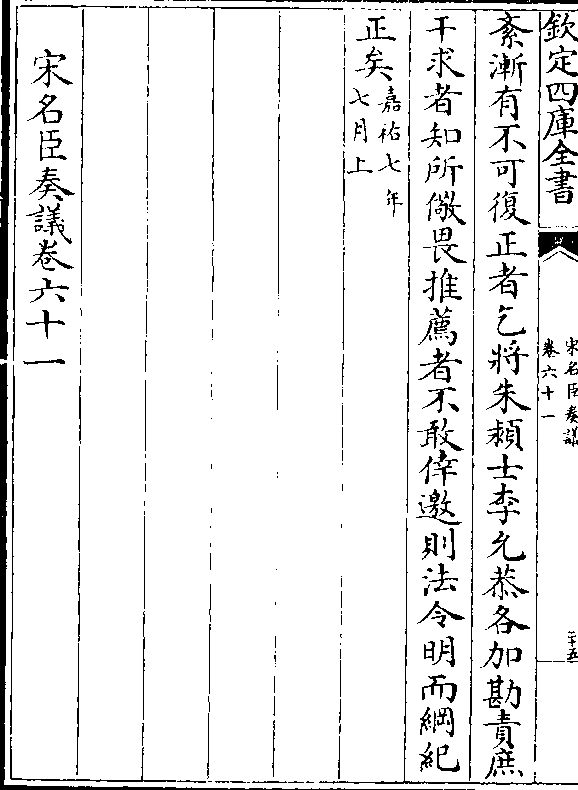 欽定四庫全書
宋名臣奏議
卷六十一
二十五
紊漸有不可復正者乞將朱頴士李允恭各加勘責庶
干求者知所儆畏推薦者不敢倖邀則法令明而綱紀
正矣嘉祐七年
七月上
宋名臣奏議卷六十一